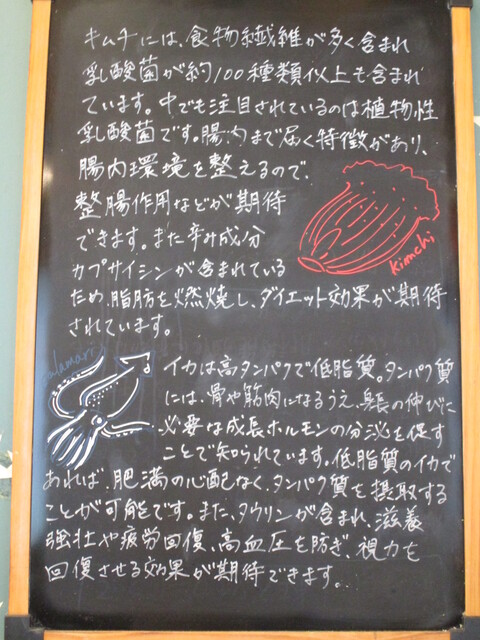 キムチには、食物繊維が多く含まれ
乳酸菌が約100種類以上も含まれ
ています。中でも注目されているのは植物性
乳酸菌です。腸内まで届く特徴があり、
腸内環境を整えるので、
整腸作用などが期待
できます。また辛み成分
カプサイシンが含まれている
ため、脂肪を燃焼し、ダイエット効果が期待
されています。
kimchi
calamari
イカは高タンパクで低脂質。タンパク質
には、骨や筋肉になるうえ、身長の伸びに
必要な成長ホルモンの分泌を促す
ことで知られています。低脂質のイカで
あれば、肥満の心配なく、タンパク質を摂取する
ことが可能です。また、タウリンが含まれ、滋養
強壮や疲労回復、高血圧を防ぎ、視力を
回復させる効果が期待できます。